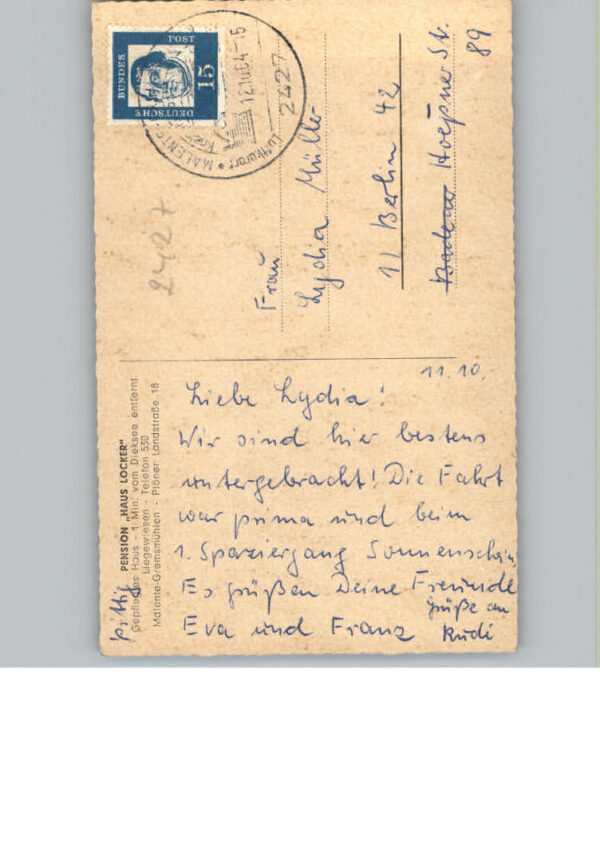 11.10.
Liebe Lydia!
Wir sind hier bestens
untergebracht! Die Fahrt
war prima und beim
1. Spaziergang Sonnenschein.
Es grüßen Deine Freunde
Eva und Franz
Grüße an
Rudi
PENSION „HAUS LOCKER"
Gepflegtes Haus - 1 Min. vom Dieksee entfernt
Liegewiesen - Telefon 530
Malente-Gremsmühlen - Plöner Landstraße 18
Frau
Lydia Müller
1/ Berlin 42
Hoepner St.
89
2427
DEUTSCHE
BUNDES
POST
15
12.10.64-16
2427
Luftkurort • MALENTE